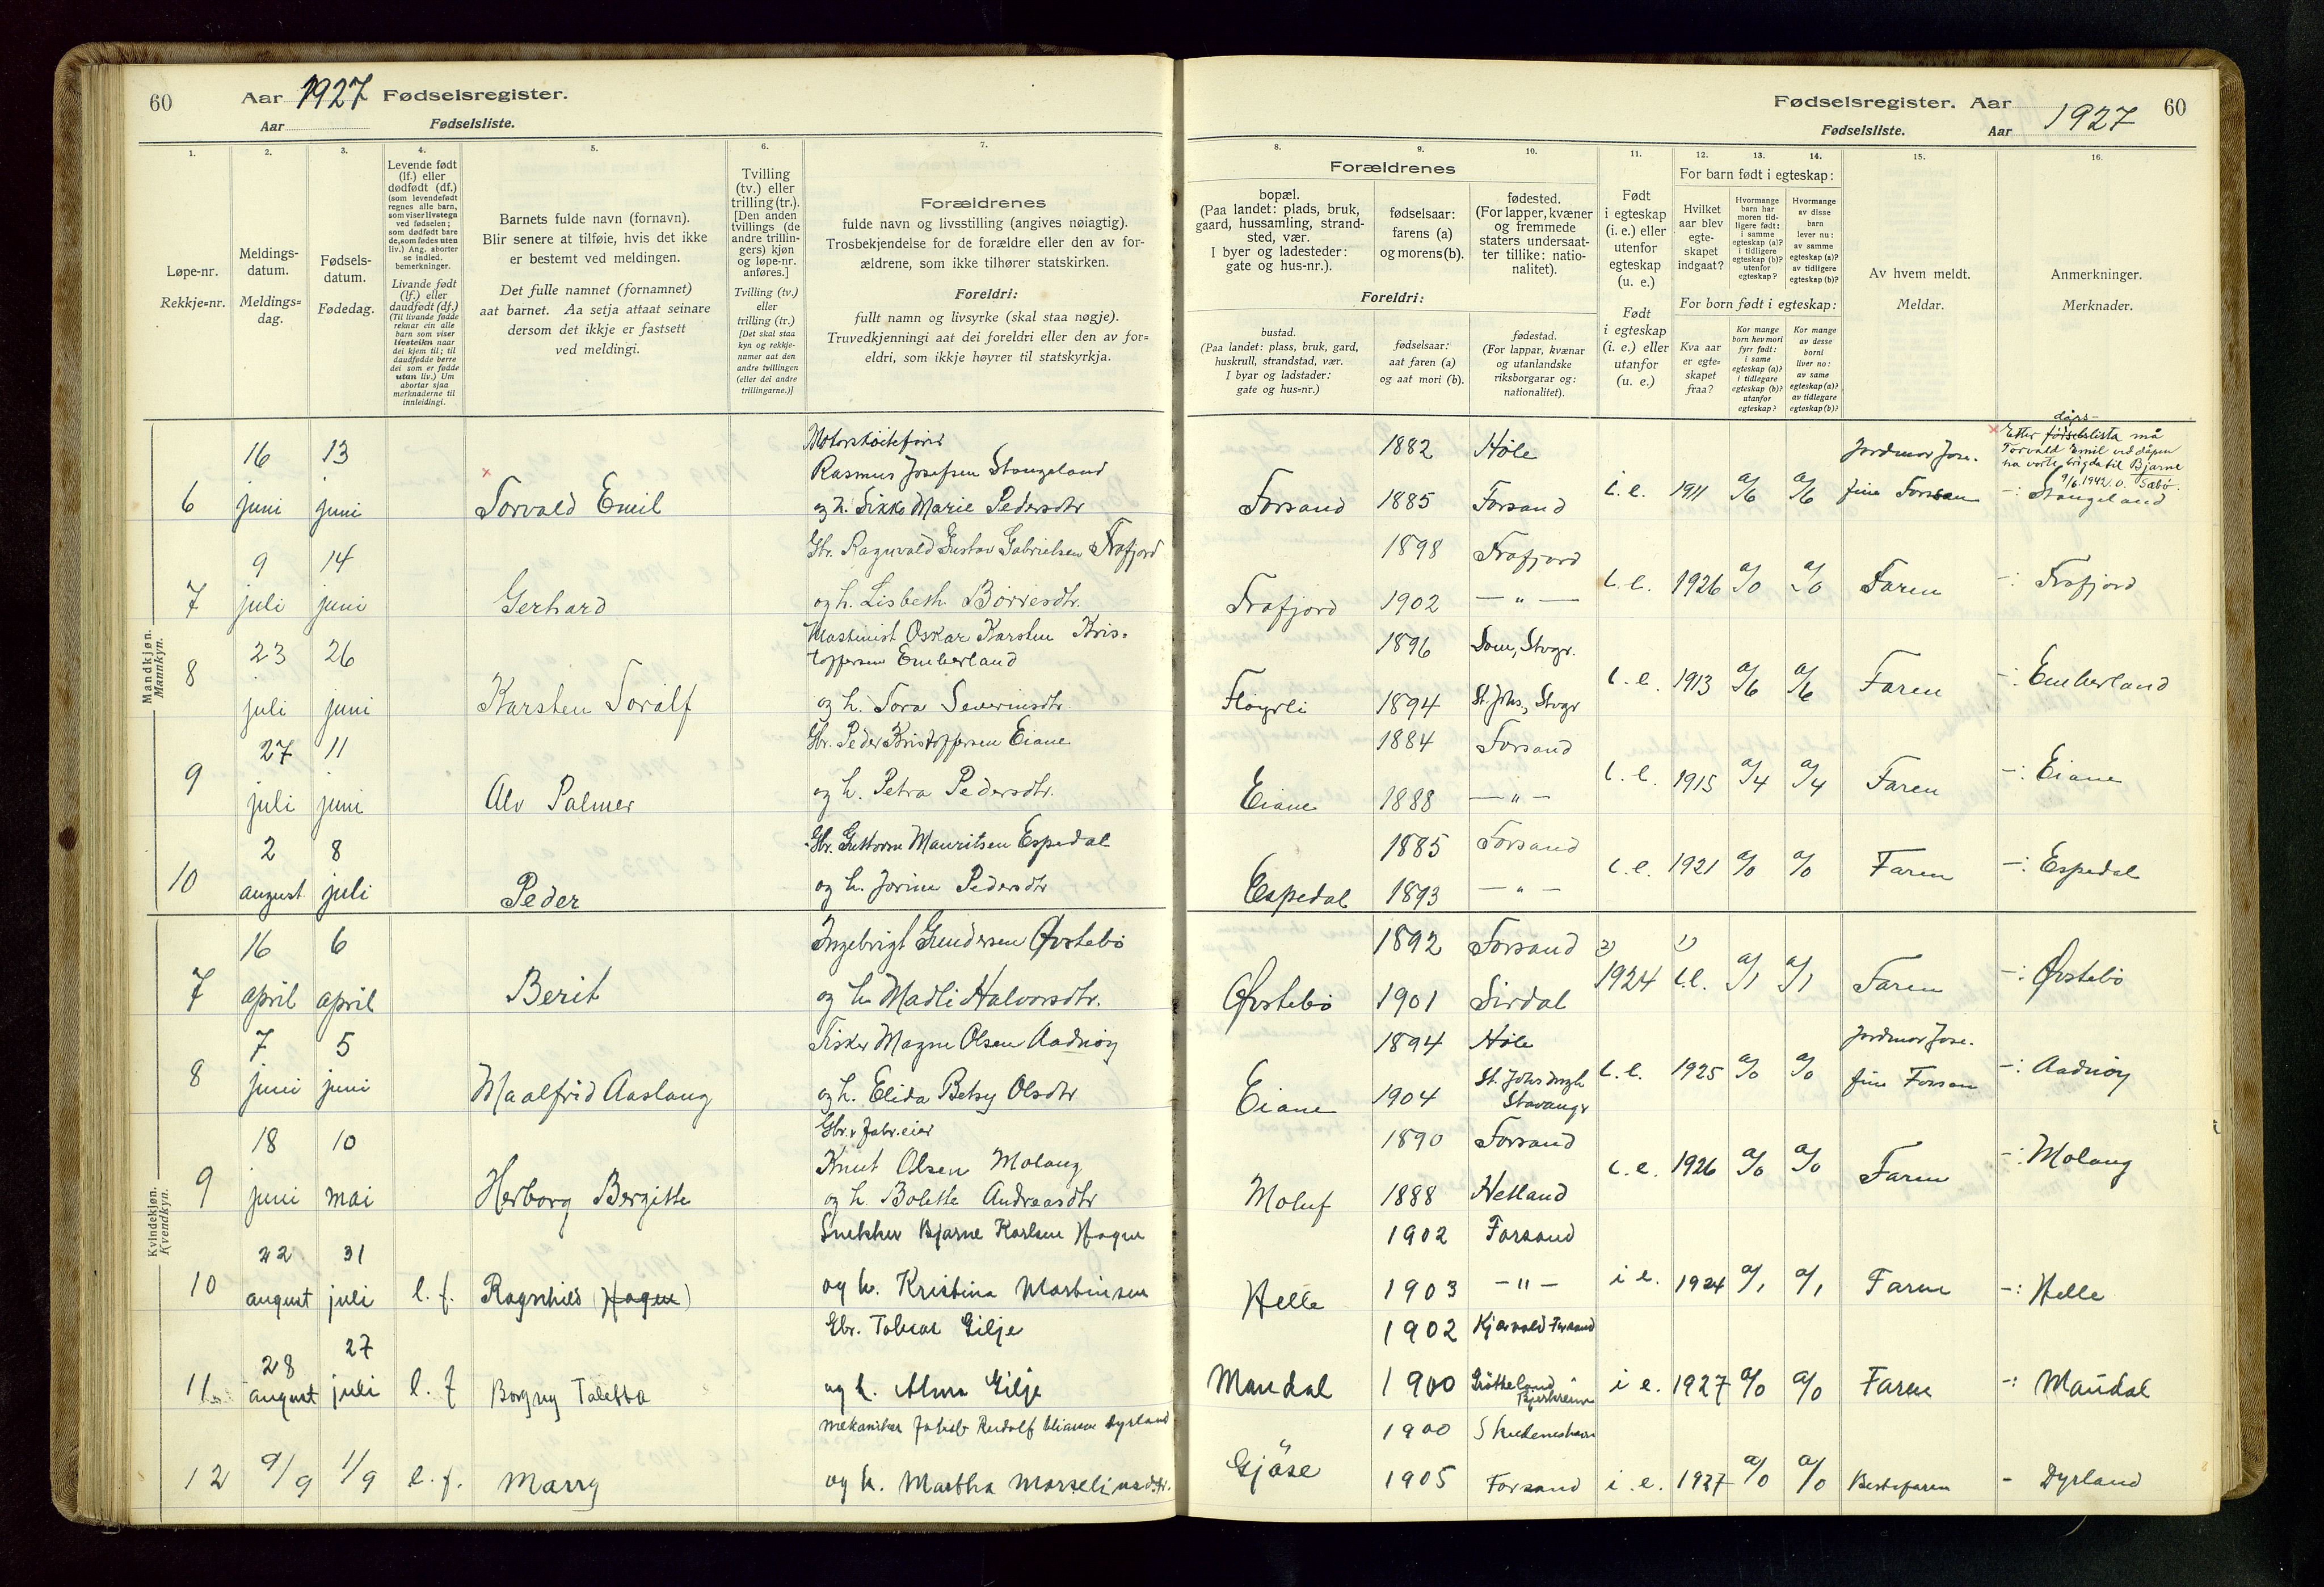 60
Aar 1927 Fødselsregister.
Aar Fødselsliste.
Fødselsregister. Aar
Fødselsliste. Aar 1927
60
1.
Løpe-nr.
Rekkje-nr.
2.
Meldings-
datum.
Meldings-
dag.
3.
Fødsels-
datum.
Fødedag.
4.
Levende født
(lf.) eller
dødfødt (df.)
(som levendefødt
regnes alle barn,
som viser livstegn
ved fødselen;
som dødfødt bare
de, som fødes uten
liv.) Ang. aborter
se indled.
bemerkninger.
Livande født
(lf.) eller
daudfødt (df.)
(Til livande fødde
reknar ein alle
born som viser
livsteikn naar
dei kjem til; til
daudfødde berre
dei som er fødde
utan liv.) Um
abortar sjaa
merknaderne til
innleidingi.
5.
Barnets fulde navn (fornavn).
Blir senere at tilføie, hvis det ikke
er bestemt ved meldingen.
Det fulle namnet (fornamnet)
aat barnet. Aa setja attaat seinare
dersom det ikkje er fastsett
ved meldingi.
6.
Tvilling
(tv.) eller
trilling (tr.).
[Den anden
tvillings (de
andre trillin-
gers) kjøn
og løpe-nr.
anføres.]
Tvilling (tv.)
eller
trilling (tr.)
[Det skal staa
kyn og rekkje-
numer aat den
andre tvillingen
(eller dei andre
trillingarne.)]
7.
Forældrenes
fulde navn og livsstilling (angives nøiagtig).
Trosbekjendelse for de forældre eller den av for-
ældrene, som ikke tilhører statskirken.
Foreldri:
fullt namn og livsyrke (skal staa nøgje).
Truvedkjenningi aat dei foreldri eller den av for-
eldri, som ikkje høyrer til statskyrkja.
8.
Forældrenes
bopæl.
(Paa landet: plads, bruk,
gaard, hussamling, strand-
sted, vær.
I byer og ladesteder:
gate og hus-nr.).
Foreldri:
bustad.
(Paa landet: plass, bruk, gard,
huskrull, strandstad, vær.
I byar og ladstader:
gate og hus-nr.)
9.
fødselsaar:
farens (a)
og morens (b).
fødselsaar:
aat faren (a)
og aat mori (b).
10.
fødested.
(For lapper, kvæner
og fremmede
staters undersaat-
ter tillike: natio-
nalitet).
fødestad.
(For lappar, kvænar
og utanlandske
riksborgarar og:
nationalitet).
11.
Født
i egteskap
(i. e.) eller
utenfor
egteskap
(u. e.)
Født
i egteskap
(i. e.) eller
utanfor
(u. e.)
12.
For barn født i egteskap:
Hvilket
aar blev
egte-
skapet
indgaat?
For born født i egteskap:
Kva aar
er egte-
skapet
fraa?
13.
Hvormange
barn har
moren tid-
ligere født:
i samme
egteskap (a)?
i tidligere
egteskap (b)?
utenfor
egteskap?
Kor mange
born hev mori
fyrr født:
i same
egteskap (a)?
i tidlegare
egteskap (b)?
utanfor
egteskap?
14.
Hvormange
av disse
barn
lever nu:
av samme
egteskap (a)?
av tidligere
egteskap (b)?
Kor mange
av desse
borni
liver no:
av same
egteskap (a)?
av tidlegare
egteskap (b)?
15.
Av hvem meldt.
Meldar.
16.
Anmerkninger.
Merknader.
Mandkjøn.
Mannkyn.
6 16 juni 13 juni Torvald Emil
Rasmus Josefsen Stangeland
og h. Sikke Marie Pedersdtr
Forsand 1882 Høle 1885 Forsand i. e. 1911 a/6 a/6 Jordmor Jose- fine Forsan
daps-
Etter fødselslista må
Torvald Emil ved dåpen
ha vorte brigda til Bjarne
9/6.1942. O. Sæbø.
-: Stangeland
7 9 juli 14 juni Gerhard
Gbr. Ragnvald Gustav Gabrielsen Frafjord
og h. Lisbeth Börresdtr.
Frafjord 1898 Frafjord 1902 — " — i. e. 1926 a/0 a/0 Faren -: Frafjord
8 23 juli 26 juni Karsten Toralf
Maskinist Oskar Karsten Kris-
toffersen Emberland
og h. Tora Severinsdtr.
Fløyrli 1896 Dom, Stvgr. 1894 St. Johs., Stvgr i. e. 1913 a/6 a/6 Faren -: Emberland
9 27 juli 11 juni Alv Palmer
Gbr. Peder Kristoffersen Eiane
og h. Petra Pedersdtr.
Eiane 1884 Forsand 1888 — " — i. e. 1915 a/4 a/4 Faren -: Eiane
10 2 august 8 juli Peder
Gbr. Guttorm Mauritsen Espedal
og h. Jorine Pedersdtr
Espedal 1885 Forsand 1893 — " — i. e. 1921 a/0 a/0 Faren -: Espedal
Kvindekjøn.
Kvendkyn.
7 16 april 6 april Berit
Ingebrigt Gundersen Øvstebö
og h. Madli Halvorsdtr.
Øvstebö 1892 Forsand 1901 Sirdal 2) 1924 1) i. e. a/1 a/1 Faren -: Øvstebö
8 7 juni 5 juni Maalfrid Aaslaug
Fisker Magne Olsen Aadnöy
og h. Elida Betsy Olsdtr
Eiane 1894 Høle 1904 St. Johs mgh Stavangr i. e. 1925 a/0 a/0 Jordmor Jose- fine Forsan -: Aadnöy
9 18 juni 10 mai Herborg Bergitte
Gbr. & Fabr.eier
Knut Olsen Molaug
og h. Bolette Andreasdtr
Moluf 1890 Forsand 1888 Hetland i. e. 1926 a/0 a/0 Faren -: Molaug
10 22 august 31 juli l. f. Ragnhild (Hagen)
Snekker Bjarne Karlsen Hagen
og h. Kristina Martinsen
Helle 1902 Forsand 1903 — " — i e. 1924 a/1 a/1 Faren -: Helle
11. 28 august 27 juli l. f Borgny Taletta
Gbr. Tobias Gilje
og h. Alma Gilje
Mandal 1902 Kjorvold Forsand 1900 Bjerkreim i e. 1927 a/0 a/0 Faren -: Mandal
12 9/9 1/9 l. f. Marry
Mekaniker Jakob Rudolf Eliassen Dyrland
og h. Martha Marselinsdtr.
Gjöse 1900 Skudeneshavn 1905 Forsand i. e. 1927 a/0 a/0 Bestefaren - Dyrland